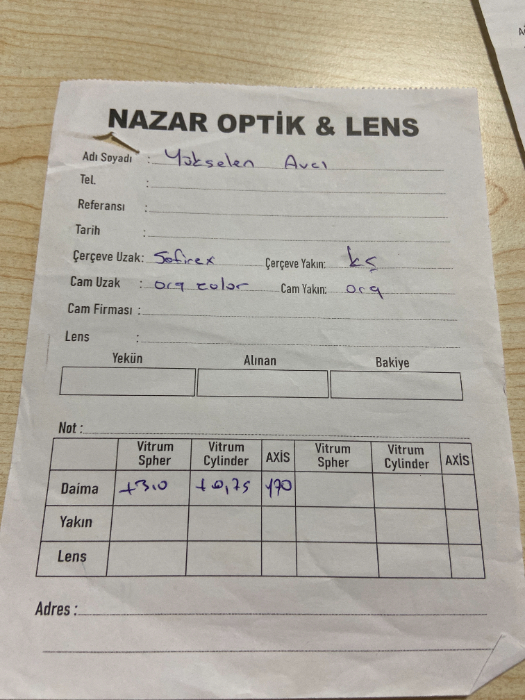 NAZAR OPTİK & LENS
Adı Soyadı : Yükselen Avcı
Tel. :
Referansı :
Tarih :
Çerçeve Uzak: Sofirex Çerçeve Yakın: kş
Cam Uzak : org color Cam Yakın: org
Cam Firması :
Lens :
Yekün Alınan Bakiye
Not :
Vitrum Spher Vitrum Cylinder AXİS Vitrum Spher Vitrum Cylinder AXİS
Daima +3.0 +0,75 170
Yakın
Lens
Adres :